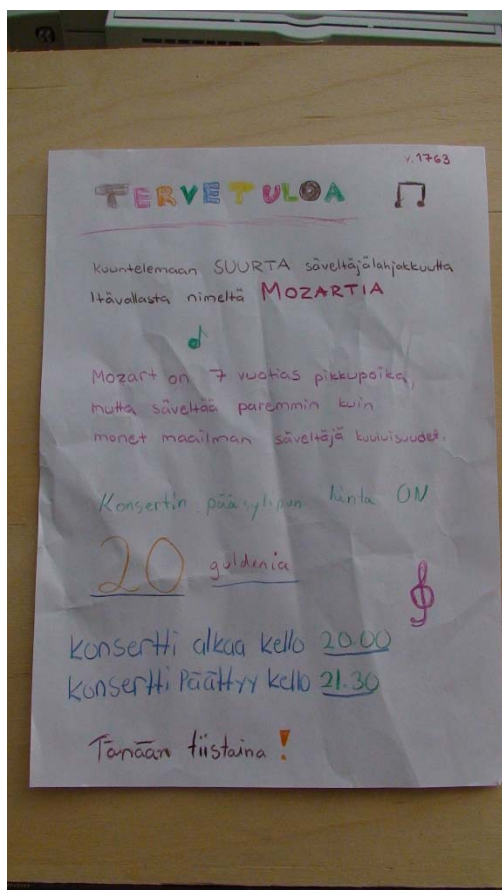 v.1763
TERVETULOA
kuuntelemaan SUURTA säveltäjälahjakkuutta
Itävallasta nimeltä MOZARTIA
Mozart on 7 vuotias pikkupoika,
mutta säveltää paremmin kuin
monet maailman säveltäjä kuuluisuudet.
Konsertin pääsylipun hinta ON
20 guldenia
konsertti alkaa kello 20.00
konsertti Päättyy kello 21.30
Tänään tiistaina !